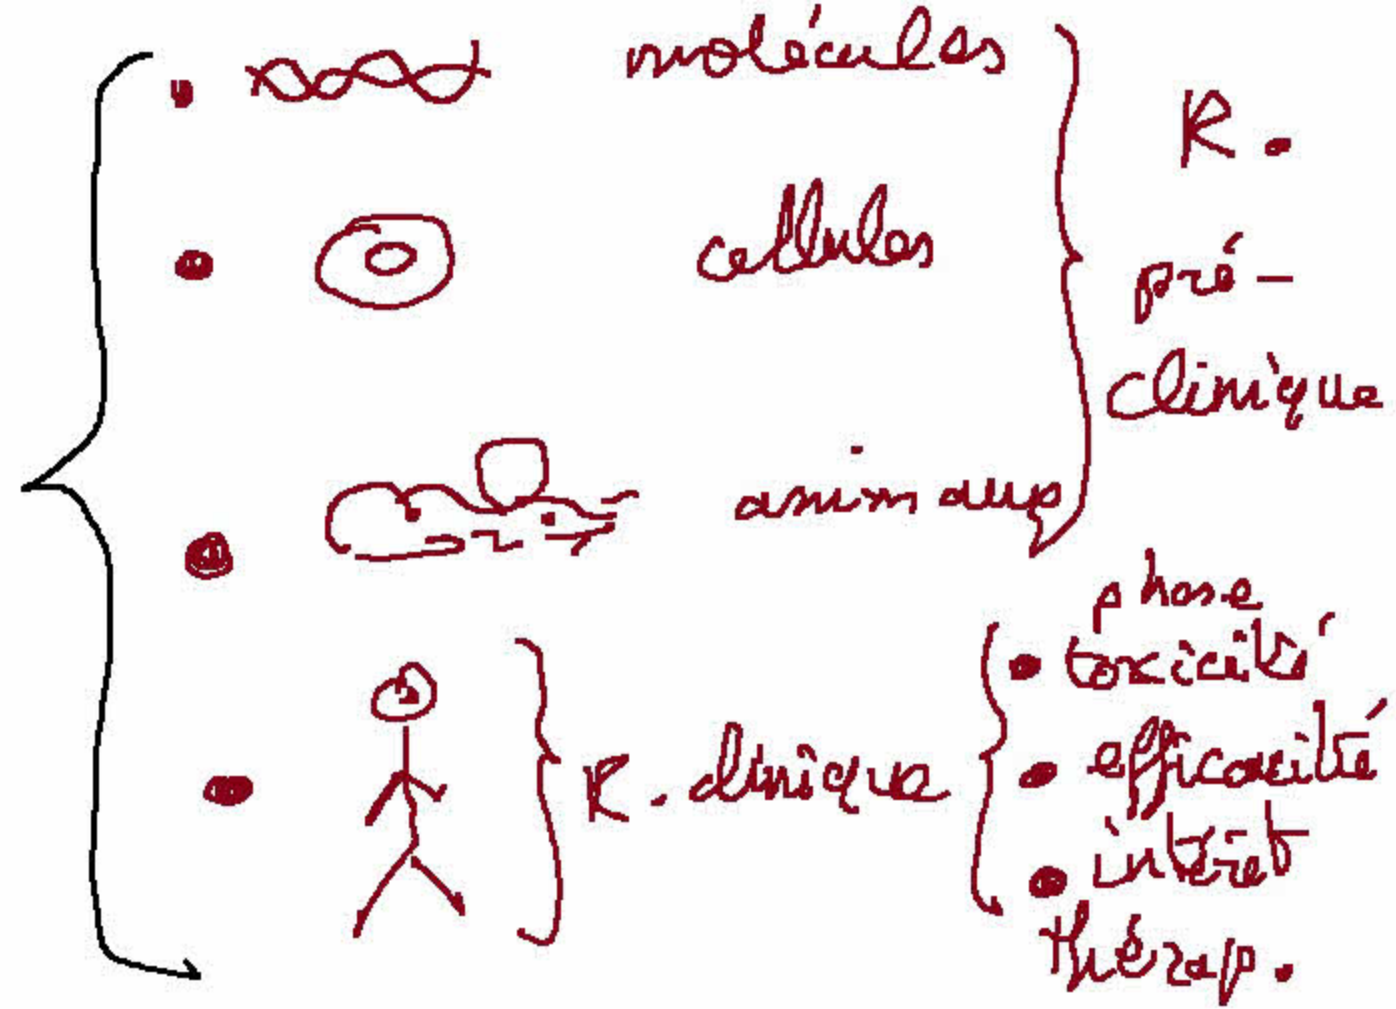 molécules
cellules
animaux
R.
pré-
clinique
R. clinique
phase
toxicité
efficacité
intérêt
thérap.